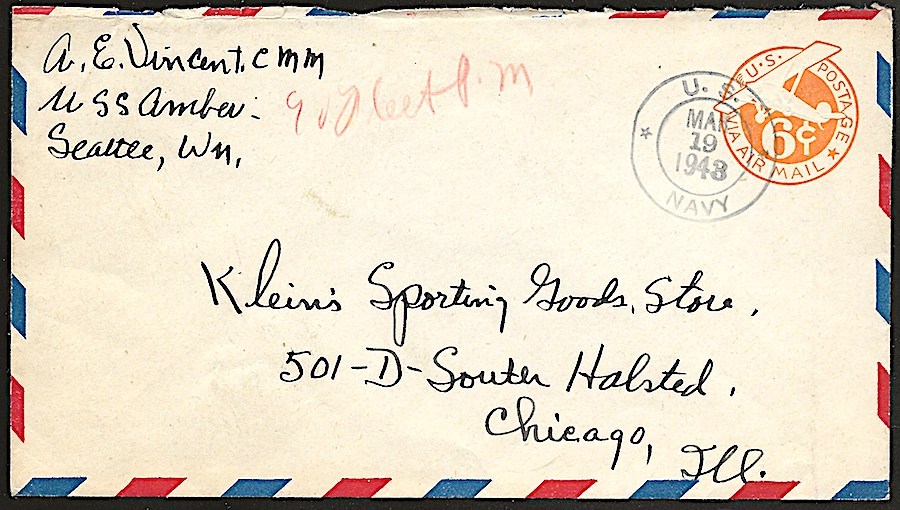 A. E. Vincent. C M M
U S S Amber.
Seattle, Wn,
℅ Fleet P. M
U. S.
MAR
19
1943
NAVY
U.S. POSTAGE
VIA AIR MAIL
6¢
Klein's Sporting Goods, Store,
501-D-South Halsted,
Chicago,
Ill.